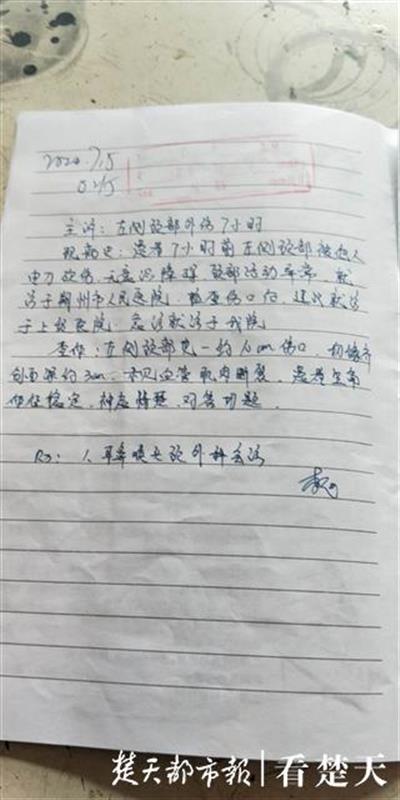 2020.7.5
0:45
主诉：左侧颈部外伤7小时
现病史：患者7小时前左侧颈部被他人
用刀砍伤，无意识障碍，颈部活动 就
诊于荆州市人民医院，检查伤口后，建议就诊
于上级医院，急诊就诊于我院
查体：左侧颈部见一约10cm伤口，
创面深约3cm，未见血管肌肉断裂，患者生命
体征稳定，神志清楚，对答切题。
Rx：1、耳鼻喉头颈外科会诊
楚天都市报 看楚天